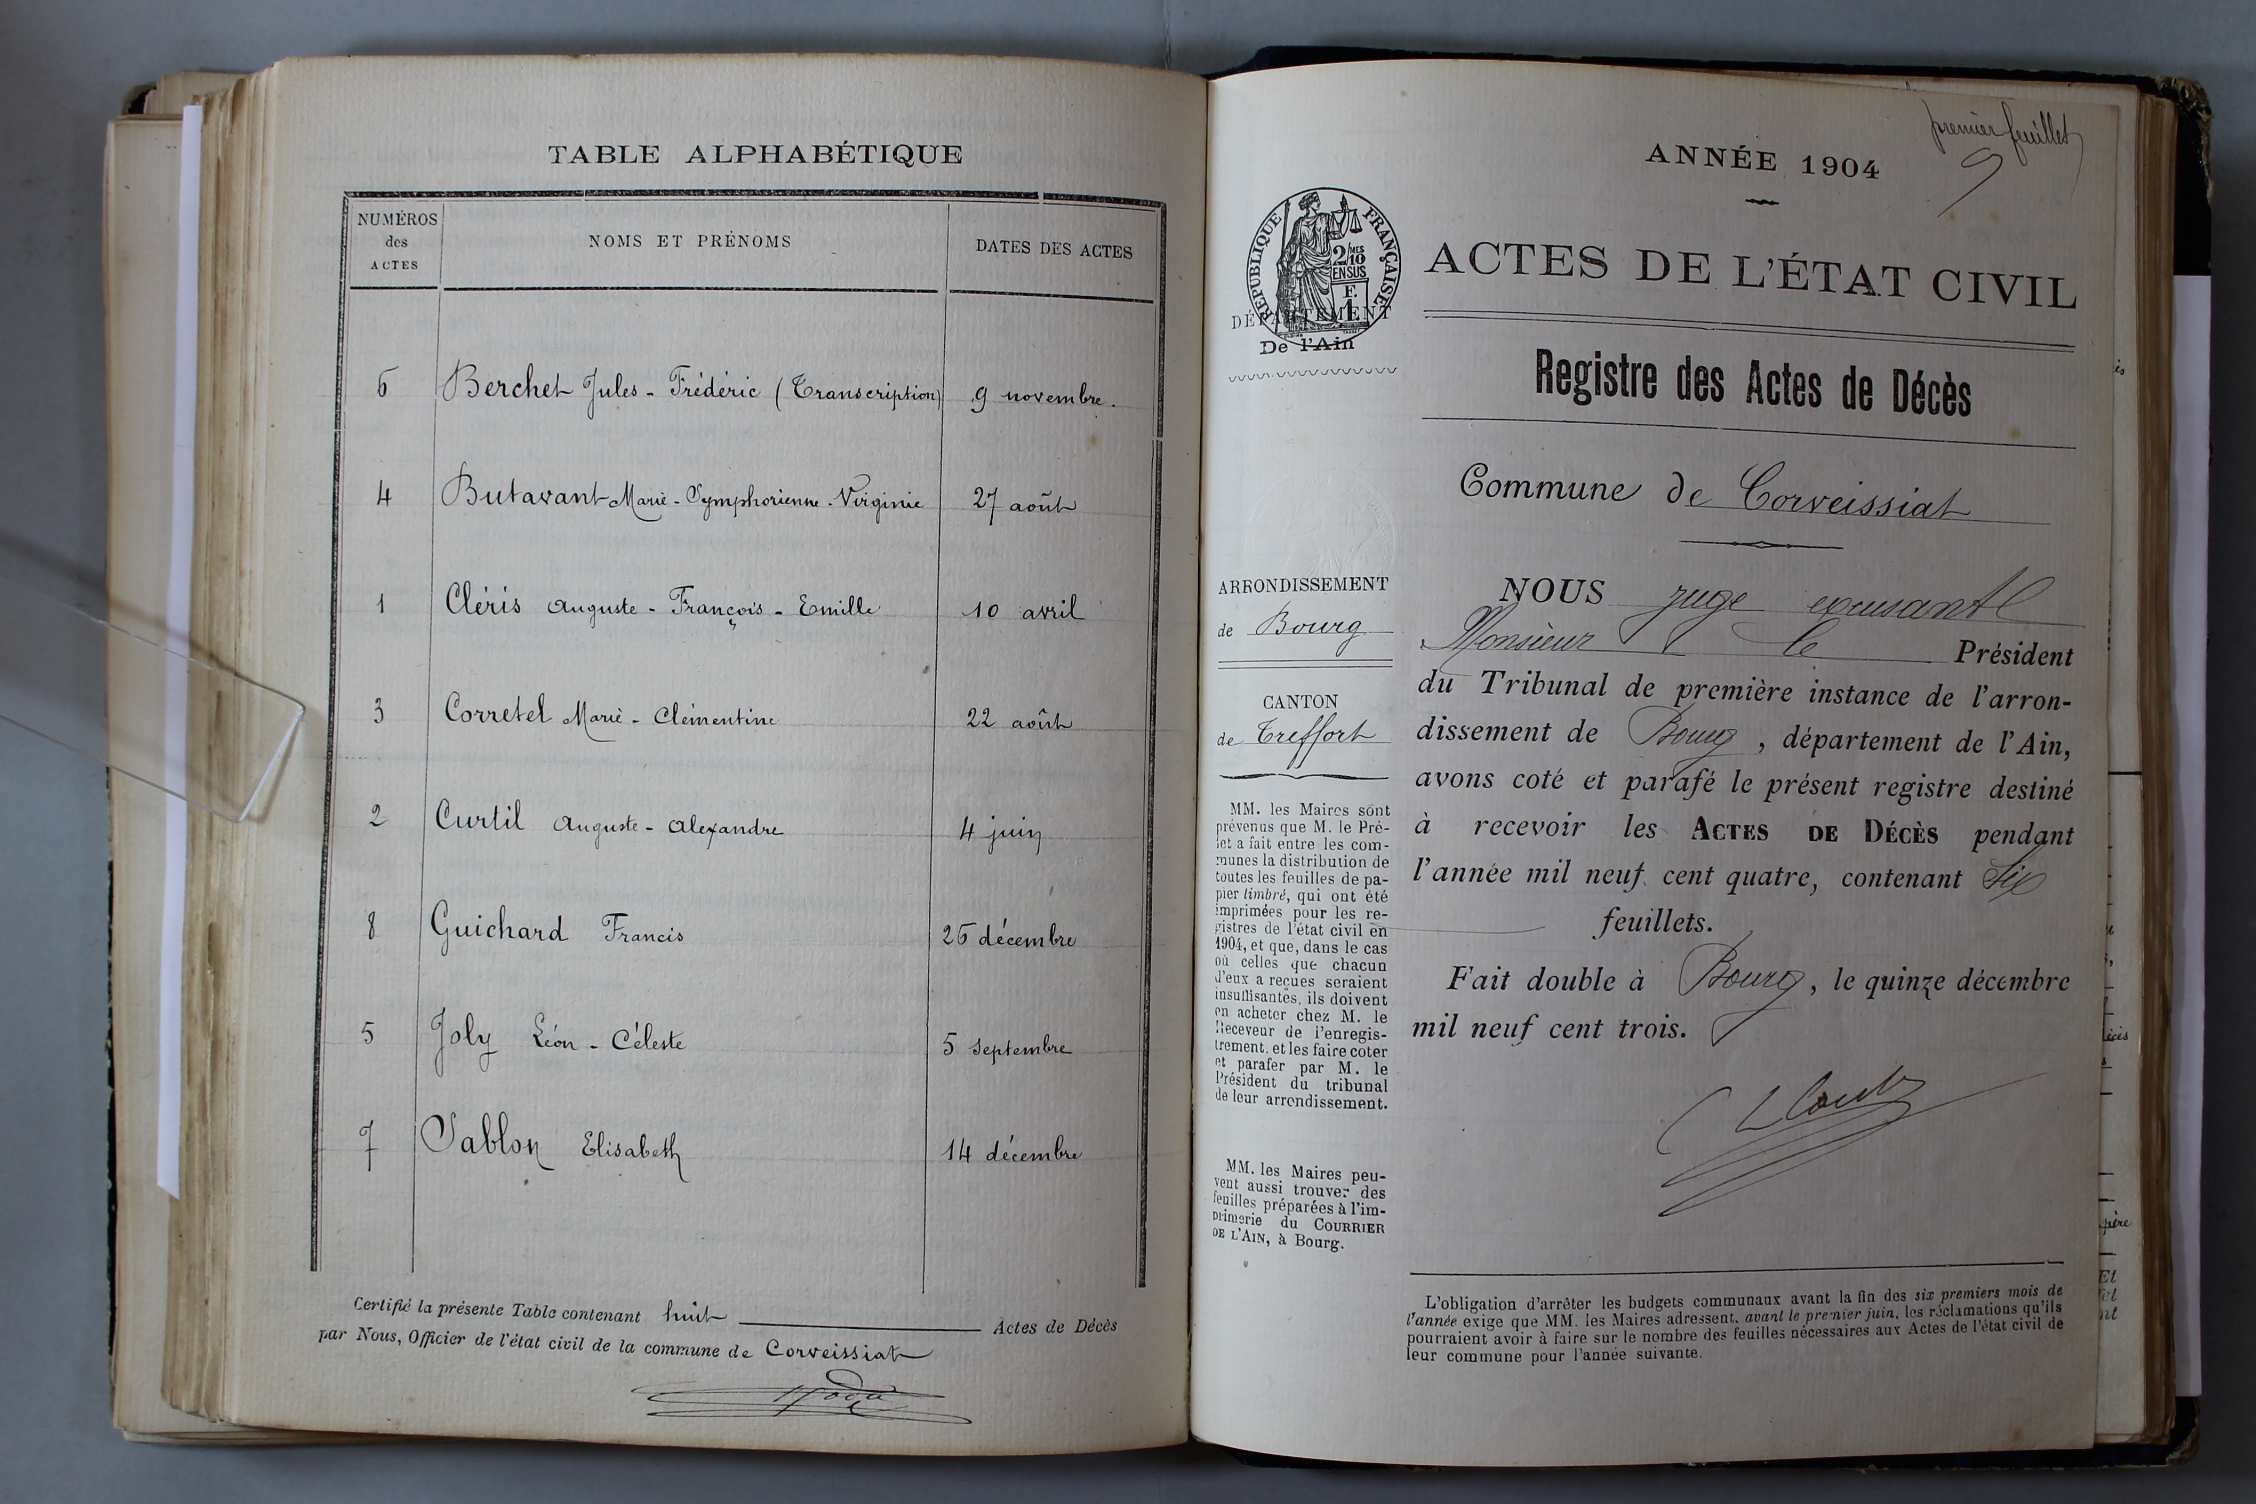 TABLE ALPHABÉTIQUE
NUMÉROS des ACTES
NOMS ET PRÉNOMS
DATES DES ACTES
6 Berchet Jules - Frédéric (Transcription) 9 novembre.
4 Butavant Marie - Symphorienne - Virginie 27 août
1 Cléris Auguste - François - Emille 10 avril
3 Corretel Marie - Clémentine 22 août
2 Curtil Auguste - Alexandre 4 juin
8 Guichard Francis 26 décembre
5 Joly Léon - Céleste 5 septembre
7 Sablon Elisabeth 14 décembre
Certifié la présente Table contenant huit Actes de Décès
par Nous, Officier de l'état civil de la commune de Corveissiat
premier feuillet
ANNÉE 1904
RÉPUBLIQUE FRANÇAISE
2/10 MES
EN SUS
F.
1
DÉPARTEMENT
De l'Ain
ACTES DE L'ÉTAT CIVIL
Registre des Actes de Décès
Commune de Corveissiat
ARRONDISSEMENT
de Bourg
CANTON
de Treffort
MM. les Maires sont
prévenus que M. le Pré-
fet a fait entre les com-
munes la distribution de
toutes les feuilles de pa-
pier timbré, qui ont été
imprimées pour les re-
gistres de l'état civil en
1904, et que, dans le cas
où celles que chacun
d'eux a reçues seraient
insuffisantes, ils doivent
en acheter chez M. le
Receveur de l'enregis-
trement, et les faire coter
et parafer par M. le
Président du tribunal
de leur arrondissement.
MM. les Maires peu-
vent aussi trouver des
feuilles préparées à l'im-
primerie du COURRIER
DE L'AIN, à Bourg.
NOUS juge
Monsieur le Président
du Tribunal de première instance de l'arron-
dissement de Bourg, département de l'Ain,
avons coté et parafé le présent registre destiné
à recevoir les ACTES DE DÉCÈS pendant
l'année mil neuf cent quatre, contenant Six
feuillets.
Fait double à Bourg, le quinze décembre
mil neuf cent trois.
L'obligation d'arrêter les budgets communaux avant la fin des six premiers mois de
l'année exige que MM. les Maires adressent, avant le premier juin, les réclamations qu'ils
pourraient avoir à faire sur le nombre des feuilles nécessaires aux Actes de l'état civil de
leur commune pour l'année suivante.